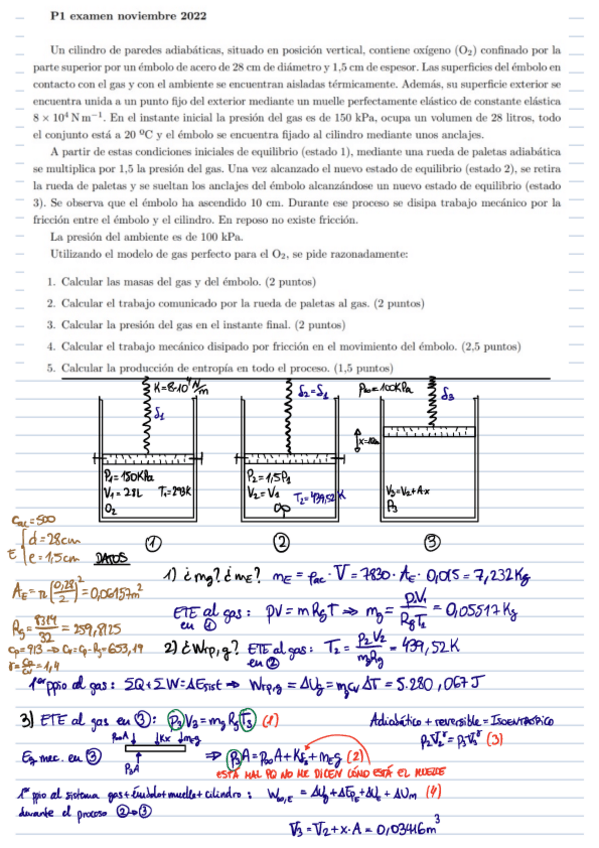 P1 examen noviembre 2022
Un cilindro de paredes adiabáticas, situado en posición vertical, contiene oxígeno (O₂) confinado por la
parte superior por un émbolo de acero de 28 cm de diámetro y 1,5 cm de espesor. Las superficies del émbolo en
contacto con el gas y con el ambiente se encuentran aisladas térmicamente. Además, su superficie exterior se
encuentra unida a un punto fijo del exterior mediante un muelle perfectamente elástico de constante elástica
8 × 10⁴ N m⁻¹. En el instante inicial la presión del gas es de 150 kPa, ocupa un volumen de 28 litros, todo
el conjunto está a 20 ºC y el émbolo se encuentra fijado al cilindro mediante unos anclajes.
A partir de estas condiciones iniciales de equilibrio (estado 1), mediante una rueda de paletas adiabática
se multiplica por 1,5 la presión del gas. Una vez alcanzado el nuevo estado de equilibrio (estado 2), se retira
la rueda de paletas y se sueltan los anclajes del émbolo alcanzándose un nuevo estado de equilibrio (estado
3). Se observa que el émbolo ha ascendido 10 cm. Durante ese proceso se disipa trabajo mecánico por la
fricción entre el émbolo y el cilindro. En reposo no existe fricción.
La presión del ambiente es de 100 kPa.
Utilizando el modelo de gas perfecto para el O₂, se pide razonadamente:
1. Calcular las masas del gas y del émbolo. (2 puntos)
2. Calcular el trabajo comunicado por la rueda de paletas al gas. (2 puntos)
3. Calcular la presión del gas en el instante final. (2 puntos)
4. Calcular el trabajo mecánico disipado por fricción en el movimiento del émbolo. (2,5 puntos)
5. Calcular la producción de entropía en todo el proceso. (1,5 puntos)
K=8·10⁴ N/m
δ₁
δ₂=δ₁
P∞=100KPa
δ₃
P₁=150KPa
V₁=28L T₁=293K
O₂
P₂=1,5P₁
V₂=V₁ T₂=439,52K
V₃=V₂+Ax
P₃
① ② ③
Cac=500
E d=28cm
e=1,5cm
DATOS
A_E=π(0,28/2)²=0,06157m²
Rg=8314/32=259,8125
Cp=913→Cv=Cp-Rg=653,19
γ=Cp/Cv=1,4
1) ¿mg? ¿mE? mE=ρac·V=7830·A_E·0,015=7,232Kg
ETE al gas: pV=mRgT ⇒ mg=P₁V₁/RgT₁=0,05517Kg
en ①
2) ¿Wrp,g? ETE al gas: T₂=P₂V₂/mgRg=439,52K
en ②
1er ppio al gas: ΣQ+ΣW=ΔEsist ⇒ Wrp,g=ΔUg=mgCvΔT=5.280,067J
3) ETE al gas en ③: P₃V₃=mgRgT₃ (1)
Adiabático+reversible=ISOENTRÓPICO
P₂V₂^γ=P₃V₃^γ (3)
P∞A Kx mEg
Eq mec. en ③
P₃A
⇒ P₃A=P∞A+K +mEg (2)
ESTÁ MAL PQ NO ME DICEN CÓMO ESTÁ EL MUELLE
1er ppio al sistema gas+émbolo+muelle+cilindro: W∞,E=ΔUg+ΔEpE+ΔUE+ΔUm (4)
durante el proceso ②→③
V₃=V₂+x·A=0,03416m³